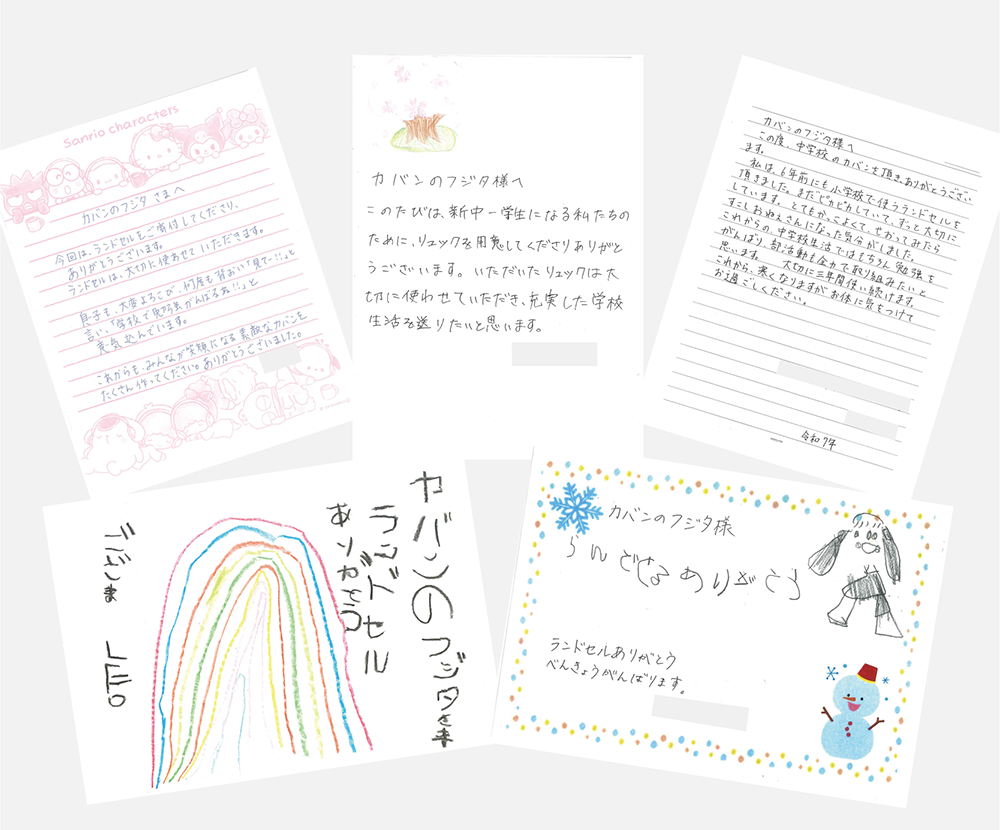 Sanrio characters
カバンのフジタ さまへ
今回は、ランドセルをご寄付してくださり、
ありがとうございます。
ランドセルは、大切に使わせていただきます。
息子も、大変よろこび、何度も背おい「見てー!!」と
言い、「学校で勉強がんばるぞ!!」と
意気込んでいます。
これからも、みんなが笑顔になる素敵なカバンを
たくさん作ってください。ありがとうございました。
カバンのフジタ様へ
このたびは、新中一学生になる私たちの
ために、リュックを用意してくださりありがと
うございます。いただいたリュックは大
切に使わせていただき、充実した学校
生活を送りたいと思います。
カバンのフジタ様へ
この度、中学校のカバンを頂き、ありがとうござい
ます。
私は、6年前にも小学校で使うランドセルを
頂きました。まだピカピカしていて、ずっと大切に
しています。とてもかっこよくて、せおってみたら
すこしおねえさんになった気分がしました。
これからの中学校生活ではもちろん勉強を
がんばり、部活動も全力で取り組みたいと
思います。 大切に三年間使い続けます。
これから、寒くなりますがお体に気をつけて
お過ごしください。
令和7年
カバンのフジタさま
ランドセル
ありがとう
カバンのフジタ様
らんどせるありがとう
ランドセルありがとう
べんきょうがんばります。